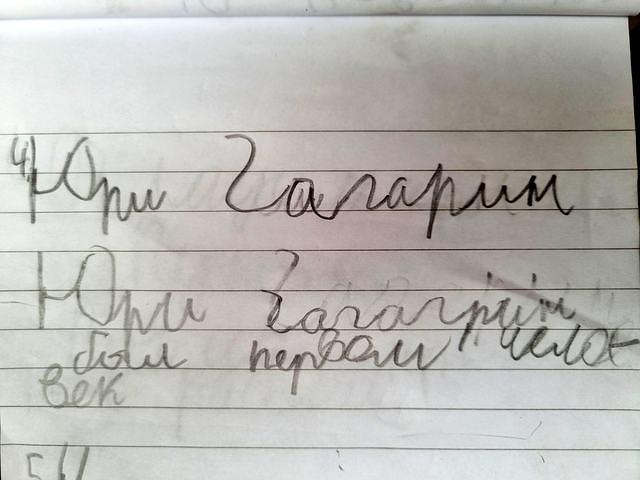 4) Юри Гагарин
Юри Гагагрин
бил первом чело-
век
5)